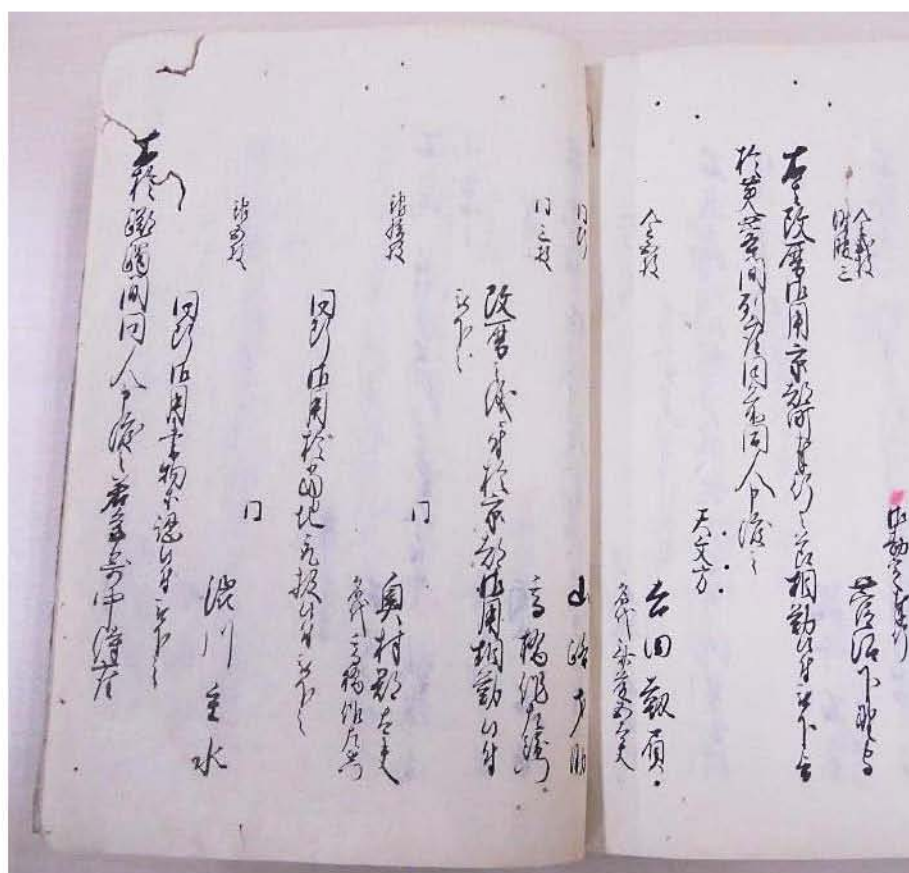 御勘定奉行
菅沼下野守
金弐枚
時服三
右者改暦御用京都町奉行之節相勤候付被下旨
於芙蓉間列座同前同人申渡之
天文方
金三枚
吉田靱負
名代
同断
山路才助
同三枚
高橋作左衛門
改暦之儀ニ付於京都御用相勤候付
被下之
銀拾枚
同
奥村郡太夫
名代 高橋作左衛門
同断御用於当地取扱候付被下之
銀五枚
同
渋川主水
同断御用書物等認候付被下之
右於躑躅間同人申渡之若年寄中侍座